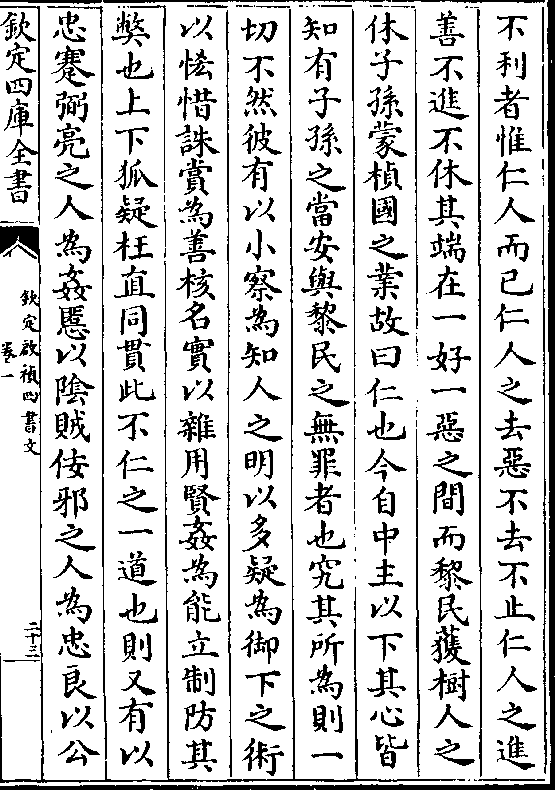 不利者惟仁人而已仁人之去惡不去不止仁人之進
善不進不休其端在一好一惡之間而黎民獲樹人之
休子孫蒙楨國之業故曰仁也今自中主以下其心皆
知有子孫之當安與黎民之無罪者也究其所為則一
切不然彼有以小察為知人之明以多疑為御下之術
以恡惜誅賞為善核名實以雜用賢姦為能立制防其
弊也上下狐疑枉直同貫此不仁之一道也則又有以
忠蹇弼亮之人為姦慝以陰賊佞邪之人為忠良以公
欽定四庫全書
欽定啟禎四書文
卷一
二十三